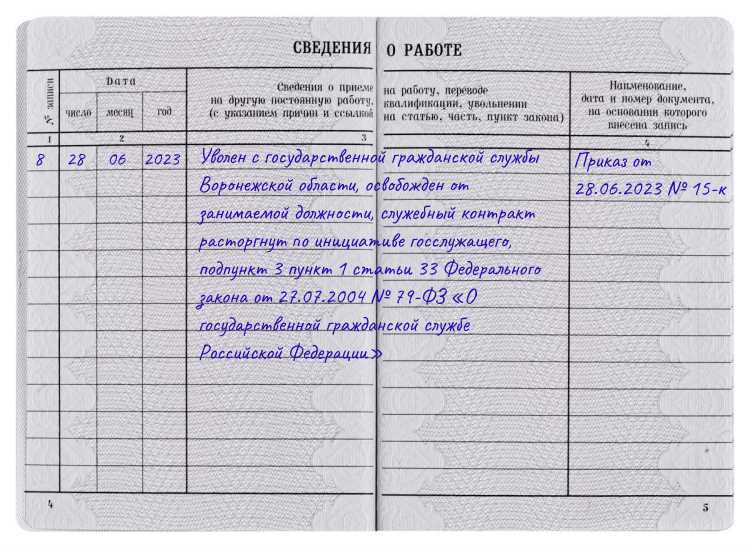 СВЕДЕНИЯ О РАБОТЕ
№ записи
Дата
Сведения о приеме на работу, переводе
на другую постоянную работу, квалификации, увольнении
(с указанием причин и ссылкой на статью, часть, пункт закона)
Наименование,
дата и номер документа,
на основании которого
внесена запись
число месяц год
1 2 3 4
8 28 06 2023 Уволен с государственной гражданской службы Приказ от
Воронежской области, освобожден от 28.06.2023 № 15-к
занимаемой должности, служебный контракт
расторгнут по инициативе госслужащего,
подпункт 3 пункт 1 статьи 33 Федерального
закона от 27.07.2004 № 79-ФЗ «О
государственной гражданской службе
Российской Федерации»
4 5